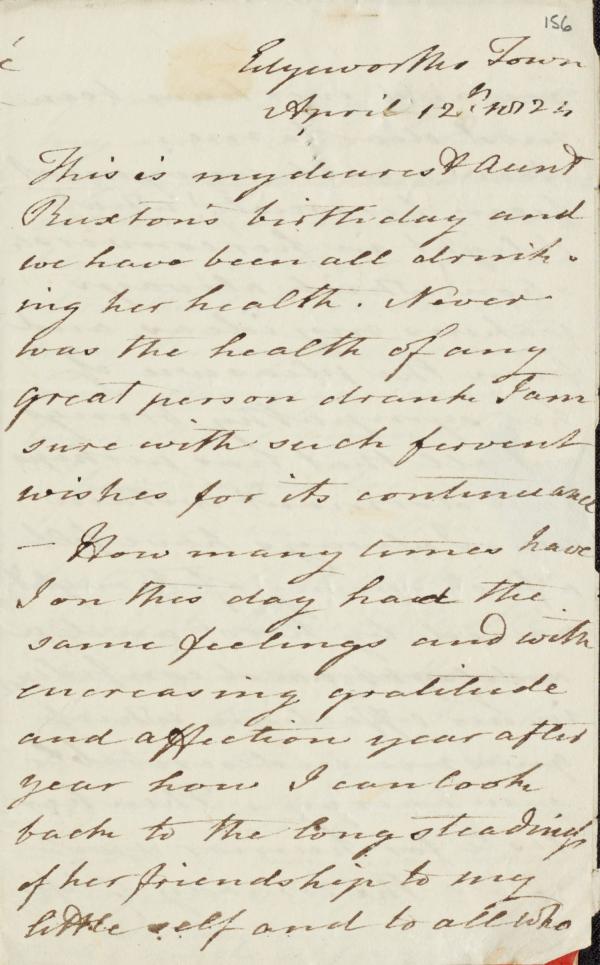 156
Edgeworths Town
April 12th 1824
This is my dearest Aunt
Ruxton's birthday and
we have been all drink-
ing her health. Never
was the health of any
great person drank I am
sure with such fervent
wishes for its continuance
— How many times have
I on this day had the
same feelings and with
encreasing gratitude
and affection year after
year how I can look
back to the long steadiness
of her friendship to my
little self and to all who